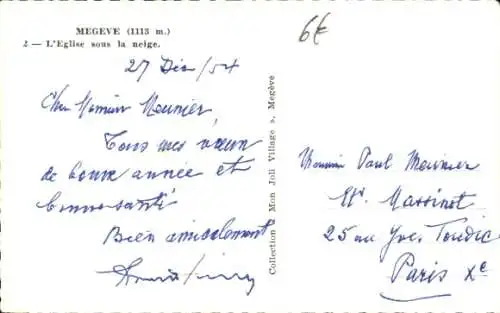 MEGEVE (1113 m.)
2 — L'Eglise sous la neige.
6€
27 Déc/54
Cher Monsieur Meunier
Tous mes vœux
de bonne année et
bonne santé
Bien amicalement
Collection « Mon Joli Village », Megève
Monsieur Paul Meunier
Massinot
25 Yves Toudic
Paris Xe